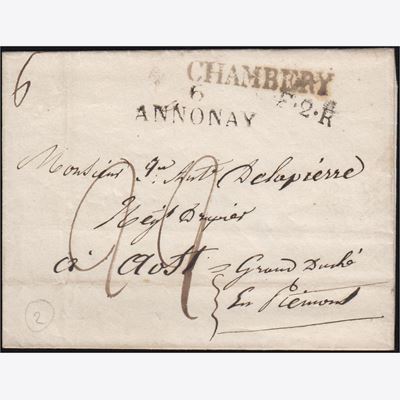 6
CHAMBERY
6
ANNONAY
F.2.R
Monsieur Jn Ante Delapierre
Negt Drapier
à Aost
Grand Duché
En Piémont
2